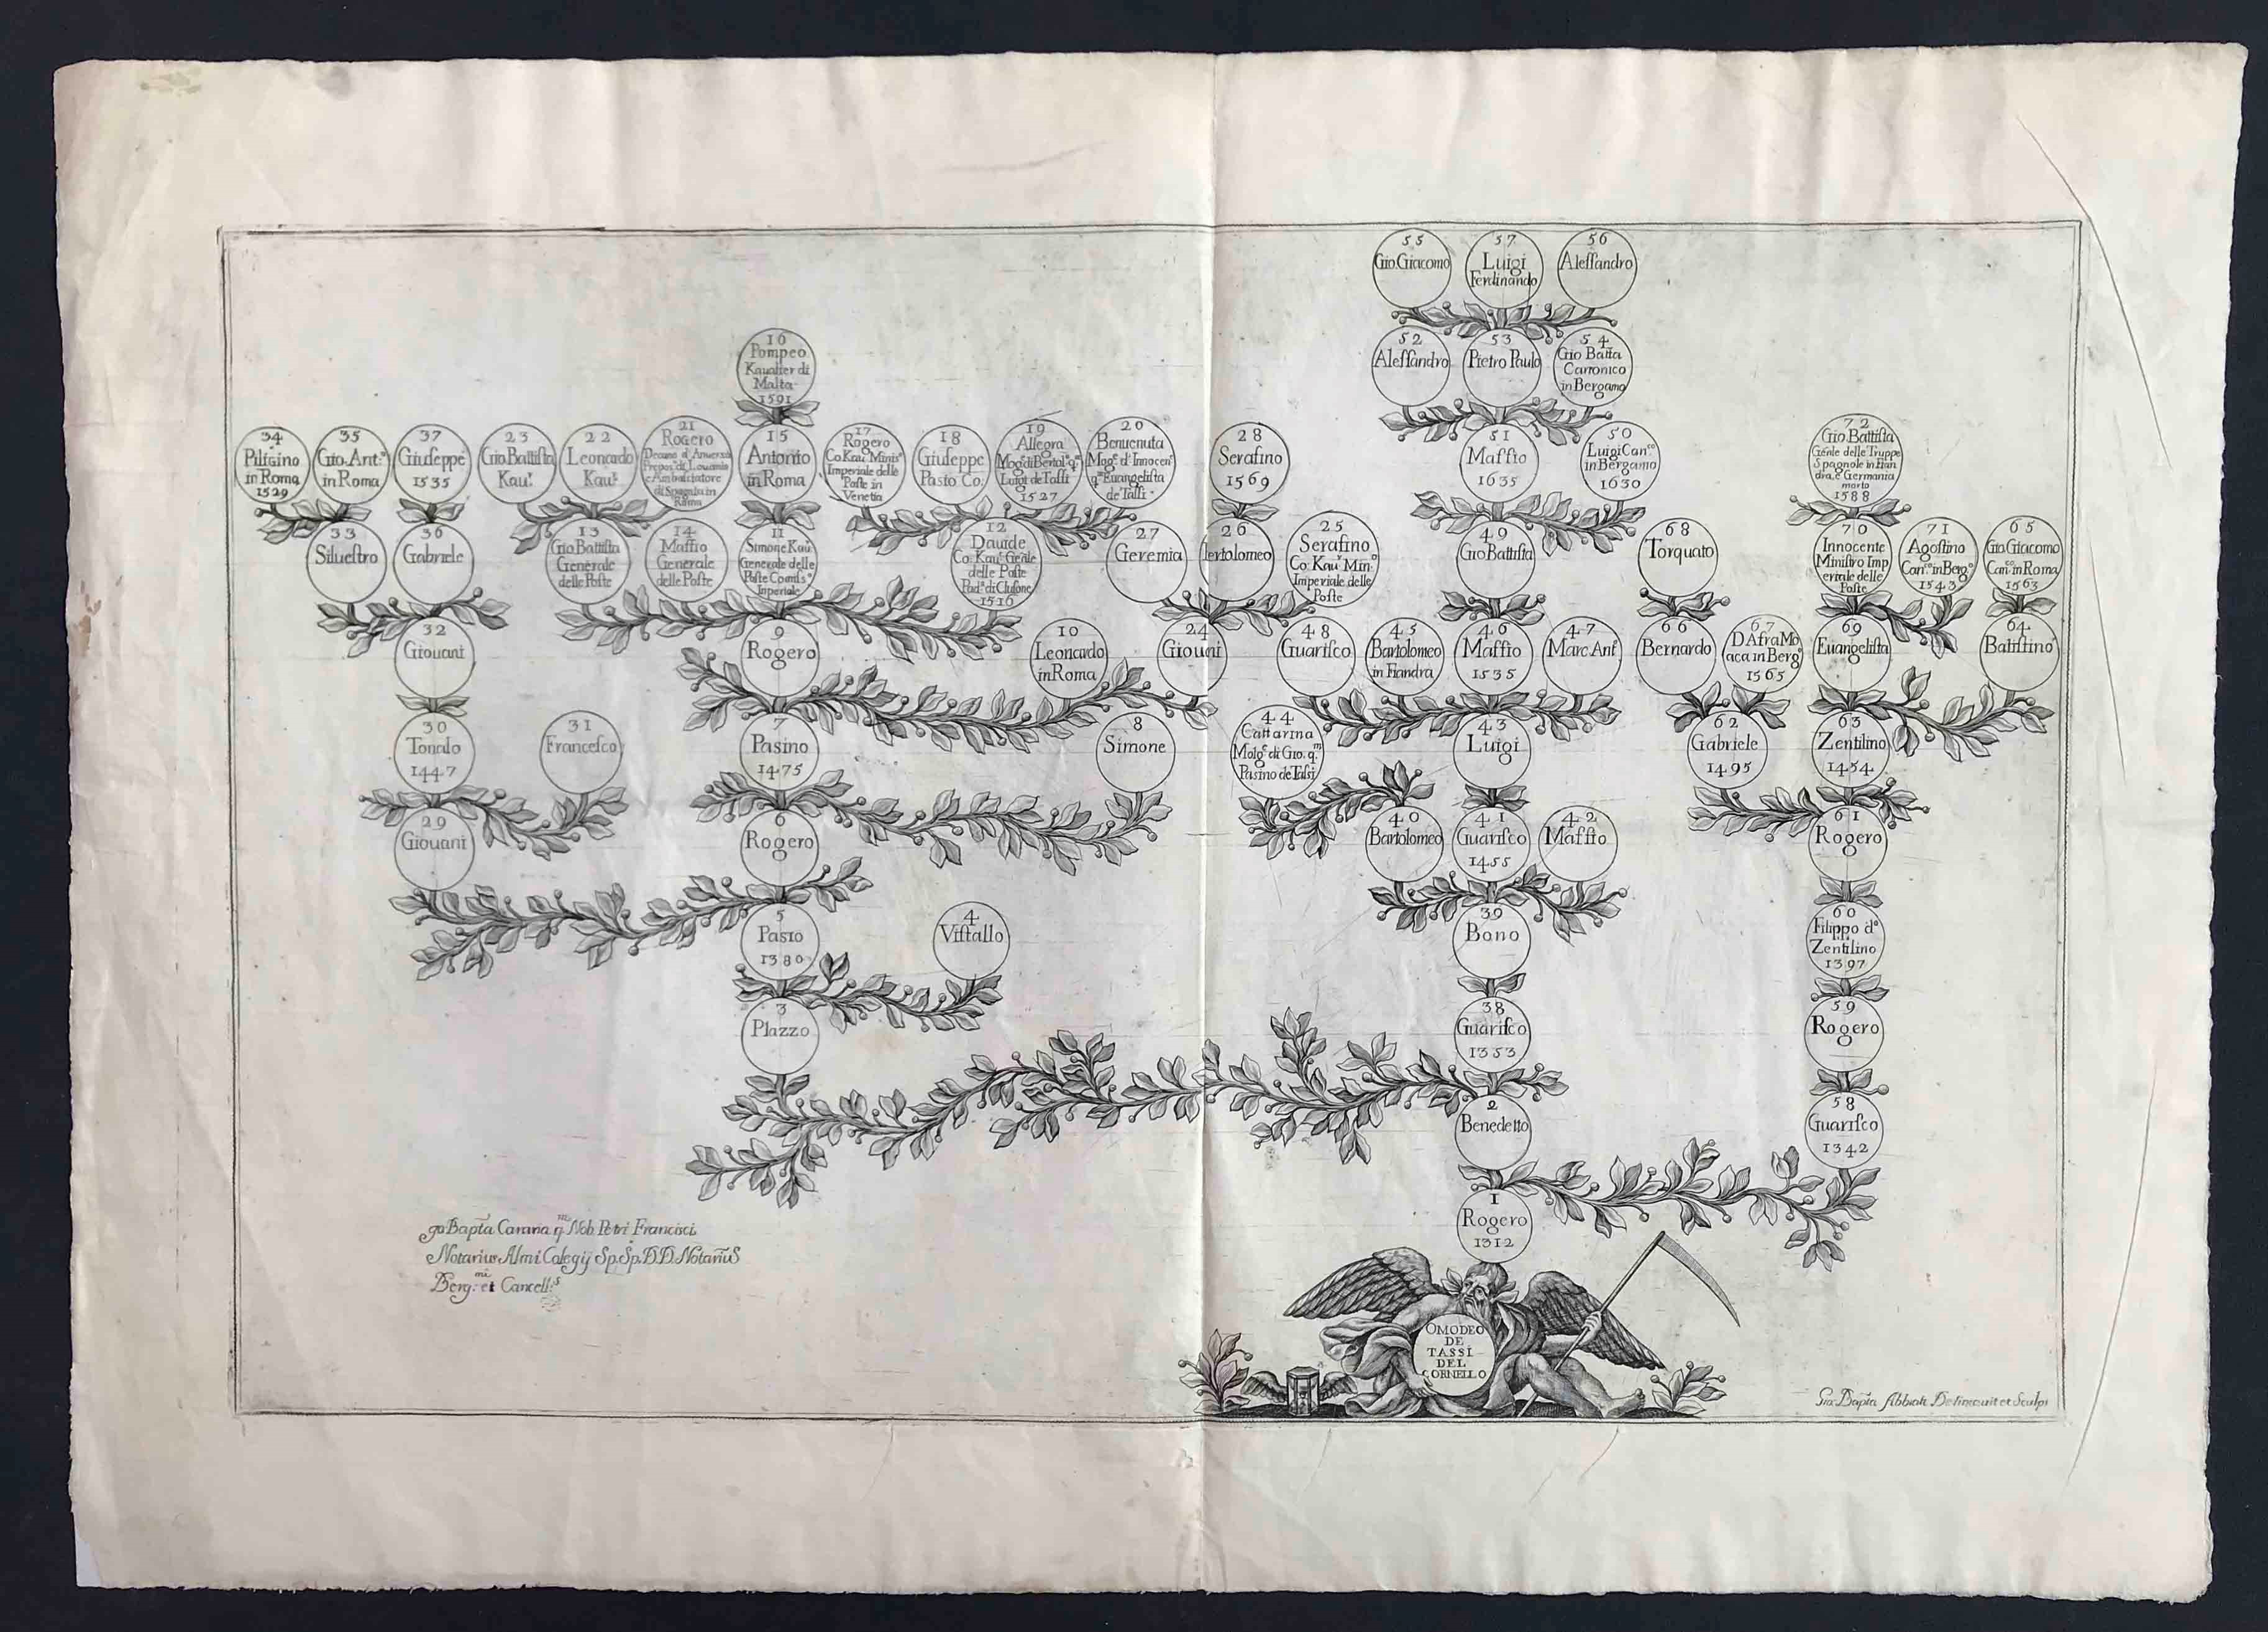 55
Gio. Giacomo
57
Luigi
Ferdinando
56
Aleſſandro
52
Aleſſandro
53
Pietro Paulo
54
Gio Batta
Canonico
in Bergamo
16
Pompeo
Kaualier di
Malta
1591
34
in Roma
1529
35
Gio. Ant.º
in Roma
37
Giuſeppe
1535
23
Gio. Battiſta
Kau.r
22
Leonardo
Kau.r
21
Rogero
Decano d'Anuersa
Propos.º di Louanio
e Ambaſciatore
di Spagna in
Roma
15
Antonio
in Roma
17
Rogero
Co. Kau.r Minis.º
Imperiale delle
Poſte in
Venetia
18
Giuſeppe
Pasio Co.
19
Allegra
Mog.e di Bertol.º q.m
Luigi de Taſſi
1527
20
Benuenuta
Mog.e d'Innocen.e
q.m Euangeliſta
de Taſſi
28
Serafino
1569
51
Maffio
1635
50
Luigi Can.co
in Bergamo
1630
72
Gio. Battiſta
Gen̄le delle Truppe
Spagnole in Fian
dra, e Germania
morto
1588
33
Silueſtro
36
Gabriele
13
Gio. Battiſta
Generale
delle Poſte
14
Maffio
Generale
delle Poſte
11
Simone Kau.r
Generale delle
Poſte
Imperiale
12
Dauide
Co. Kau.r Gen̄ale
delle Poſte
Pad.e di Cluſone
1516
27
Geremia
26
Bertolomeo
25
Serafino
Co. Kau.r Min.º
Imperiale delle
Poſte
49
Gio Battiſta
68
Torquato
70
Innocente
Miniſtro Imp
eriale delle
Poſte
71
Agoſtino
Can.co in Berg.º
1543
65
Gio. Giacomo
Can.co in Roma
1563
32
Giouani
9
Rogero
10
Leonardo
in Roma
24
Giouani
48
Guariſco
45
Bartolomeo
in Fiandra
46
Maffio
1535
47
Marc. Ant.º
66
Bernardo
67
D. Afra Mo
aca in Berg.º
1565
69
Euangeliſta
64
Batiſtino
30
Tonolo
1447
31
Franceſco
7
Pasino
1475
8
Simone
44
Cattarina
Mog.e di Gio. q.m
Pasino de Tasſi
43
Luigi
62
Gabriele
1495
63
Zentilino
1454
29
Giouani
6
Rogero
40
Bartolomeo
41
Guariſco
1455
42
Maffio
61
Rogero
5
Pasio
1380
4
Viſtallo
39
Bono
60
Filippo d.º
Zentilino
1397
3
Plazzo
38
Guariſco
1353
59
Rogero
2
Benedetto
58
Guariſco
1342
1
Rogero
1312
Bapt̄a q.m Nob. Petri Franciſci
Notarius Almi Colegij Sp. Sp. D.D. Notariu᷒
Berg.mi et Cancell.s
OMODEO
DE
TASSI
DEL
CORNELLO
Gio. Bapt̄a Abbiati Delineauit et Sculpt